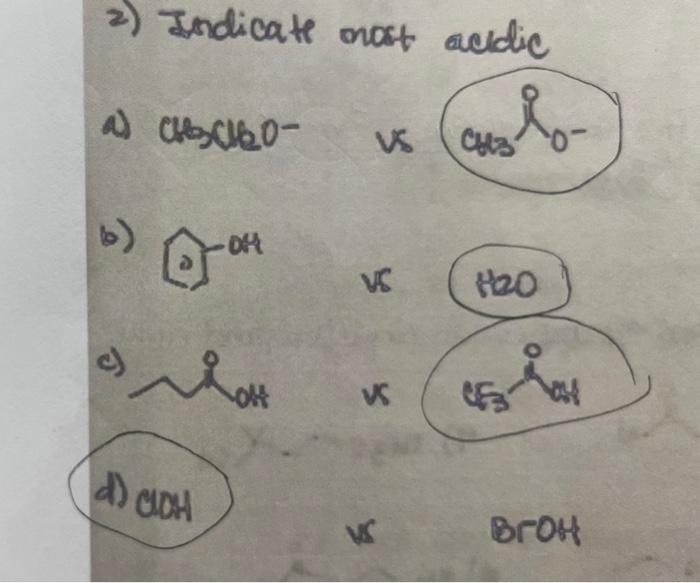 2) Indicate most acidic
a) CH3CH2O- vs CH3 O O-
b) OH vs H2O
c) O OH vs CF3 O OH
d) ClOH vs BrOH